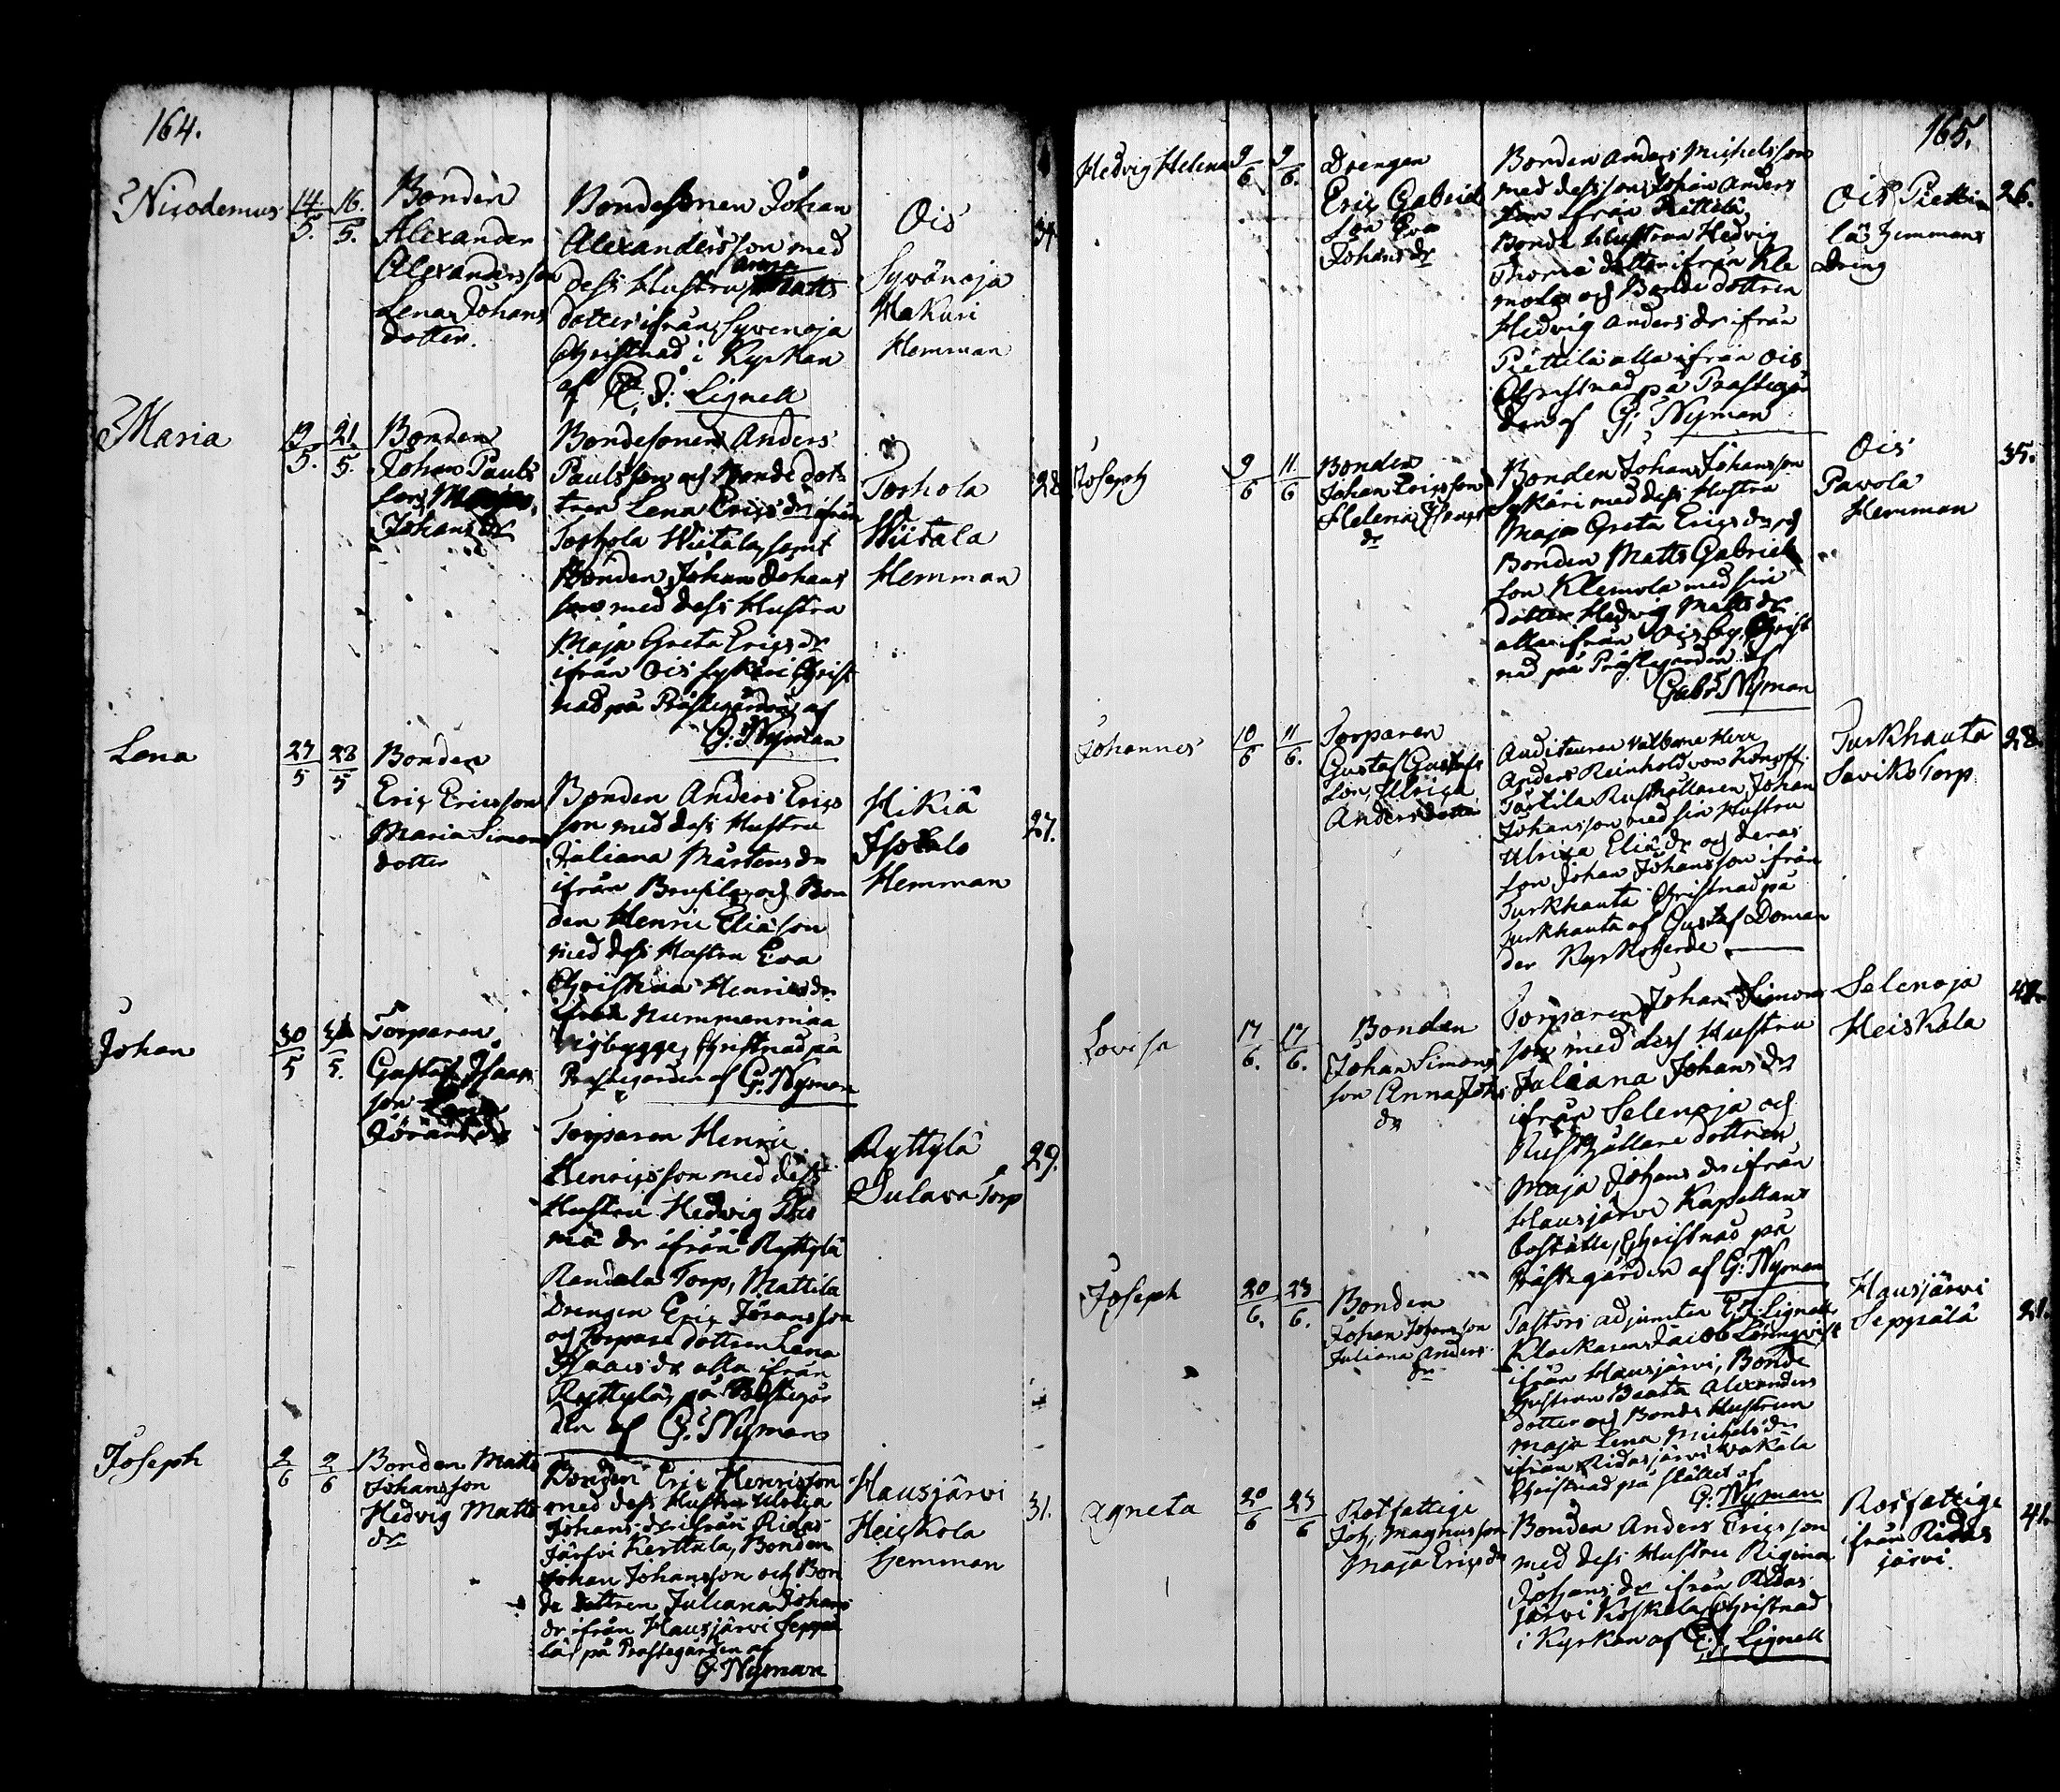 164.
Nicodemus
14/5. 16./5.
Bonden
Alexander
Alexandersson
Lena Johans
dotter.
Bondesonen Johan
Alexandersson med
dess Hustru Anna Matts
dotter ifrån Syvenoja
Christnad i Kyrkan
af E: J: Lignell
Ois
Syvänoja
Hakuri
Hemman
34.
Maria
21./5.
Bonden
Johan Pauls
son,
Johans dr
Bondesonen Anders
Paulsson och Bonde dot
tren Lena Erics dr ifrån
Torhola Wiitala, samt
Bonden Johan Johans
son med dess Hustru
Maja Greta Erics dr
ifrån Ois Sykäri Christ
nad på Prästegården af
G: Nyman
Torhola
Wiitala
Hemman
28
Lena
27/5 28/5
Bonden
Eric Ericsson
Maria Simons
dotter
Bonden Anders Erics
son med dess Hustru
Juliana Mårtens dr
ifrån och Bon
den Henric Eliæson
med dess Hustru Eva
Christina Henrics dr
ifrån Nummenmaa
Nybygge, Christnad på
Prästegården af G: Nyman
Hikiä
Isotalo
Hemman
27.
Johan
30/5 31/5.
Torparen
Gustaf Isaacs
son
Jörans dr
Torparen Henric
Henricsson med dess
Hustru Hedwig Tho
mæ dr ifrån Ryttylä
Randala Torp, Mattila
Drengen Eric Jöransson
och Torpare dottren Lena
Isaacs dr alla ifrån
Ryttylä, på Prästegår
den af G: Nyman
Ryttylä
Sulawa Torp
29.
Joseph
2/6 2/6
Bonden Matts
Johansson
Hedvig Matts
dr
Bonden Eric Henricsson
med dess Hustru Ulrica
Johans dr ifrån Ridas
järfvi Kerttula, Bonden
Johan Johansson och Bon
de dottren Juliana Johans
dr ifrån Hausjärvi Seppä
lä, på Prästegården af
G. Nyman
Hausjärvi
Heiskola
hemman
31.
165.
Hedvig Helena
9/6 9/6.
Drengen
Eric Gabriel
son Eva
Johans dr
Bonden Anders Michelsson
med dess son Johan Anders
son ifrån Piettilä
Bonde Hustrun Hedvig
Thomæ dotter ifrån Kle
mola och Bonde dottren
Hedvig Anders dr ifrån
Piettilä alla ifrån Ois
Christnad på Prästegår
den af G: Nyman
Ois Pietti
lä hemmans
Dreng
26.
Joseph
9/6 11/6
Bonden
Johan Ericsson
Helena
dr
Bonden Johan Johansson
Sykäri med dess Hustru
Maja Greta Erics dr och
Bonden Matts Gabriels
son Klemola med sin
dotter Hedvig Matts dr
alla ifrån Ois by, Christ
nad på Prästegården af
Gabr: Nyman
Ois
Pavola
Hemman
35.
Johannes
10/6 11/6.
Torparen
Gustaf Gustafs
son, Ulrica
Andersdotter
Auditeuren Välborne Herr
Anders Reinhold von Knorff.
Rusthållaren Johan
Johansson med sin Hustru
Ulrica Eliæ dr och deras
son Johan Johansson ifrån
Turkhauta Christnad på
Turkhauta af Gustaf Doman
der Kyrkoherde
Turkhauta
Saviko Torp
28.
Lovisa
17/6. 17/6.
Bonden
Johan Simons
son Anna Joh:
dr
Torparen Johan Simons
son med dess Hustru
Juliana Johans dr
ifrån Selenoja och
Rusthållare dottren
Maja Johans dr ifrån
Hausjärvi Kapellans
boställe, Christnad på
Prästegården af G: Nyman
Selenoja
Heiskala
Joseph
20/6. 23/6.
Bonden
Johan Johansson
Juliana Anders
dr
Pastors adjuncten E: J: Lignell,
Klockaren Jacob Lönnqvist
ifrån Hausjärvi, Bonde
hustrun Beata Alexanders
dotter och Bonde Hustrun
Maja Lena Michels dr
ifrån Ridasjärvi
Christnad på stället af
G: Nyman
Hausjärvi
Seppälä
21.
Agneta
20/6 23/6
Rotfattige
Joh, Magnusson
Maja Erics dr
Bonden Anders Ericsson
med dess Hustru Regina
Johans dr ifrån Ridas
järvi Koskela Christnad
i Kyrkan af E: J: Lignell
Rotfattige
ifrån Ridas
järvi.
41.